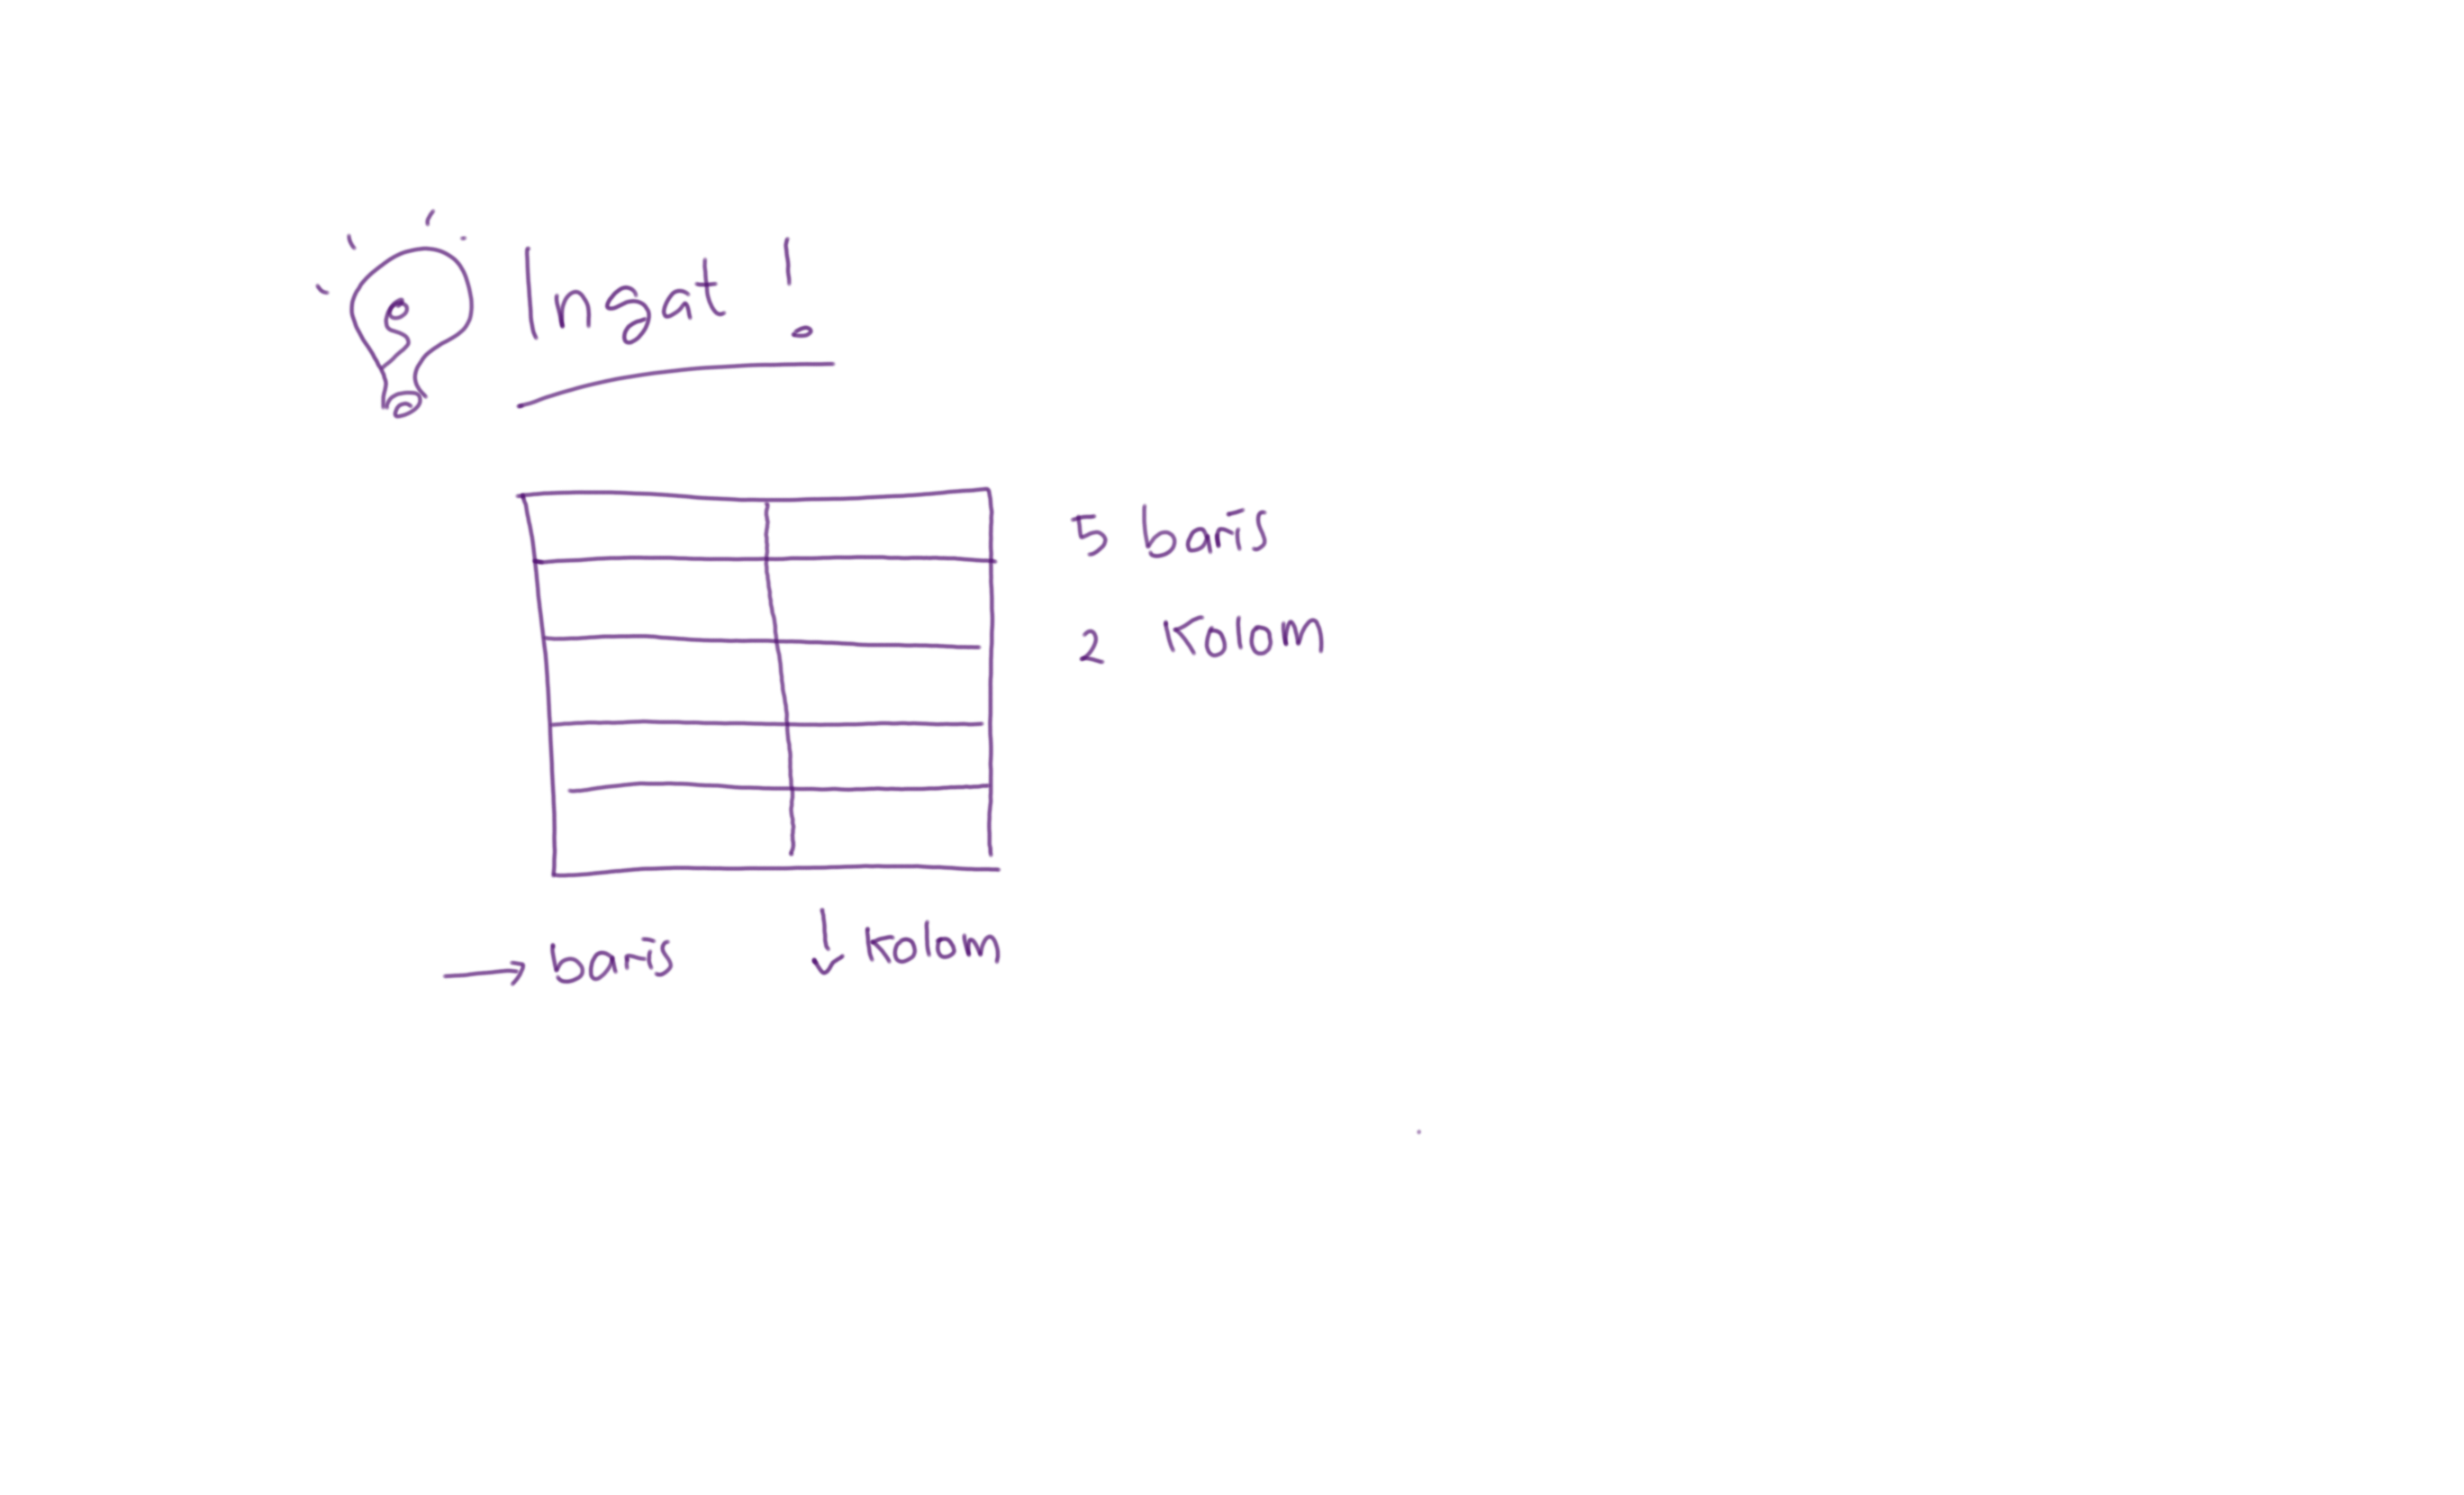 Ingat !
5 baris
2 Kolom
→ baris
↓ Kolom